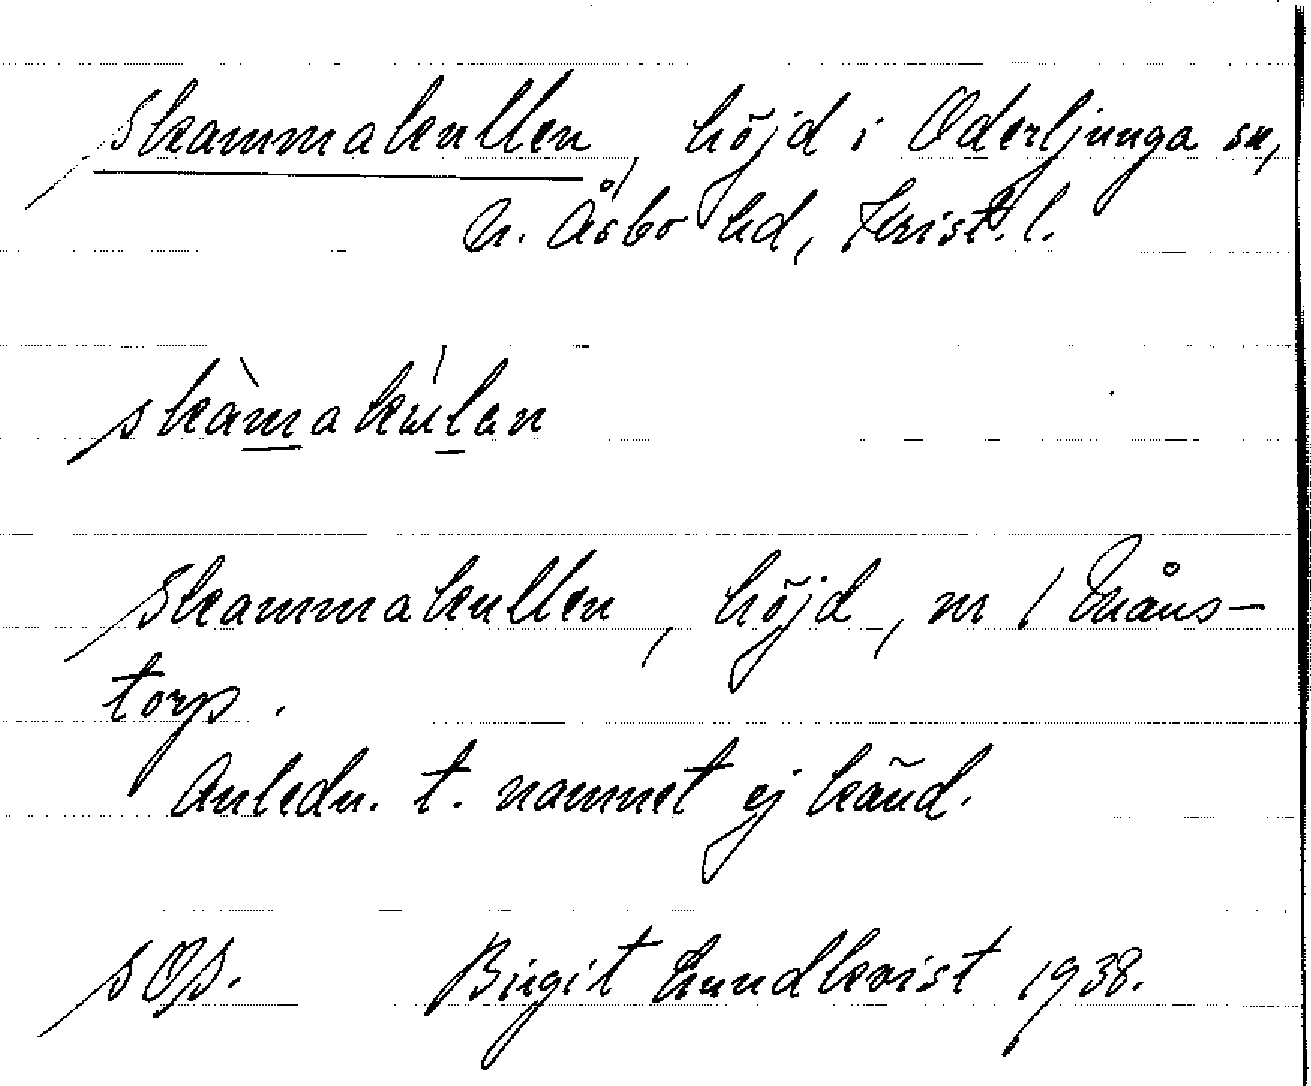 Skammakullen, höjd i Oderljunga sn,
N. Åsbo hd, Krist. l.
skàmakúlan
Skammakullen, höjd, nr 1 Måns-
torp.
Anledn. t. namnet ej känd.
sOp. Birgit Lundkvist 1938.